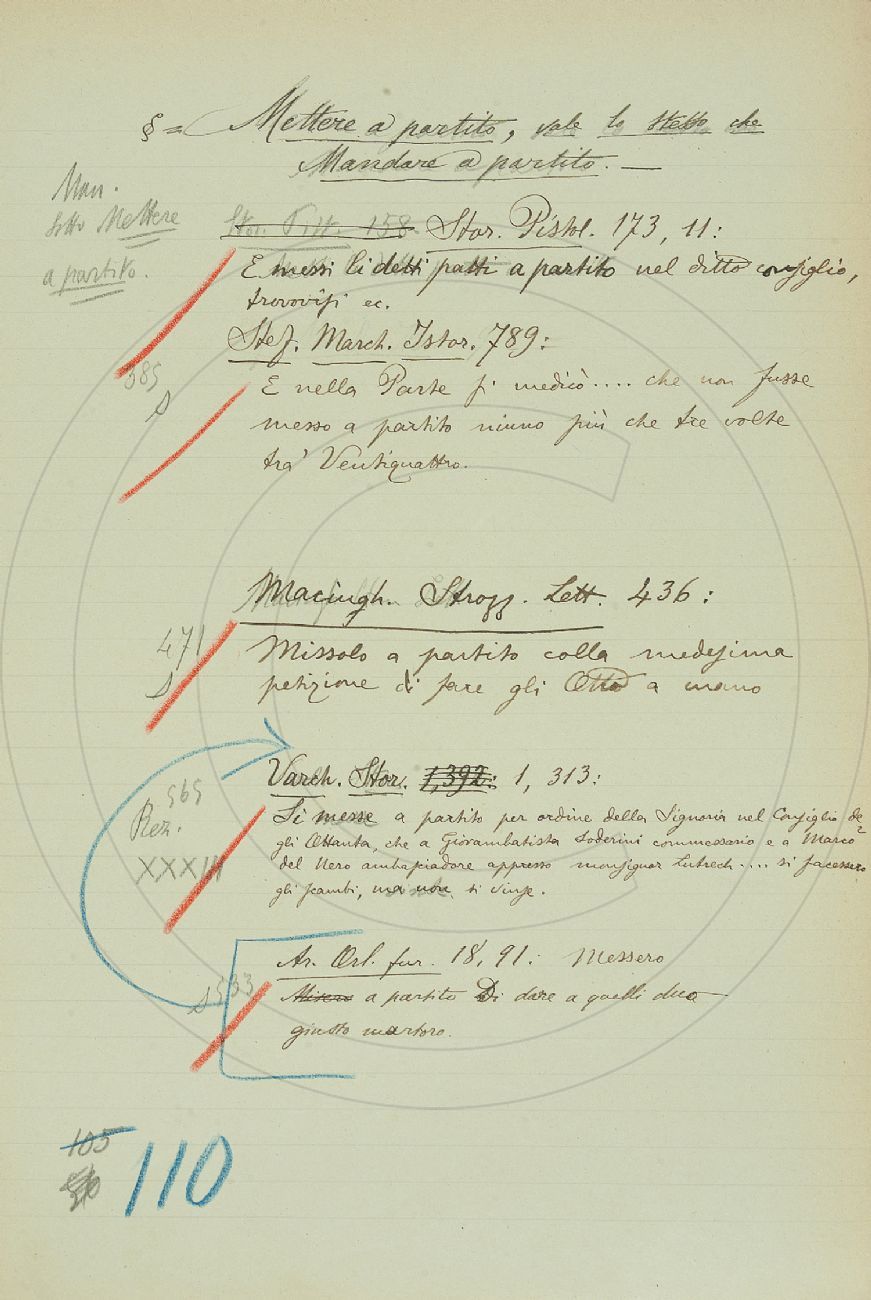 § = Mettere a partito, vale lo stesso che
Mandare a partito. —
Man.
sotto Mettere
a partito.
Stor. Pist. 158. Stor. Pistol. 173, 11:
E messi li detti patti a partito nel ditto consiglio,
trovovisi ec.
Stef. March. Istor. 789:
385
S
E nella Parte si medicò.... che non fusse
messo a partito niuno più che tre volte
tra' Ventiquattro.
Macingh. Strozz. Lett. 436:
471
S
Missolo a partito colla medesima
petizione di fare gli Otto a mano
Varch. Stor. 1,392: 1, 313:
565
Rez.
XXXIII
Si messe a partito per ordine della Signoria nel Consiglio de-
gli Ottanta, che a Giovambatista Soderini commessario e a Marco
del Nero ambasciadore appresso monsignor Lutrech.... si facessero
gli scambi, ma non si vinse.
Ar. Orl. fur. 18, 91: Messero
S 533
Misero a partito Di dare a quelli duo
giusto martoro.
105
110